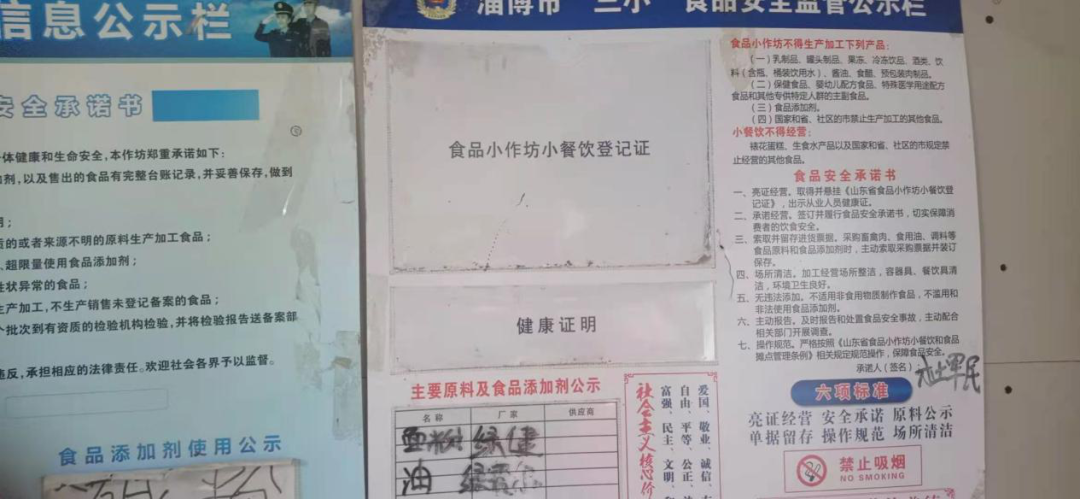 信息公示栏
安全承诺书
体健康和生命安全，本作坊郑重承诺如下：
加剂，以及售出的食品有完整台账记录，并妥善保存，做到
质的或者来源不明的原料生产加工食品；
、超限量使用食品添加剂；
性状异常的食品；
生产加工，不生产销售未登记备案的食品；
个批次到有资质的检验机构检验，并将检验报告送备案部
违反，承担相应的法律责任。欢迎社会各界予以监督。
食品添加剂使用公示
淄博市“三小”食品安全监管公示栏
食品小作坊小餐饮登记证
健康证明
主要原料及食品添加剂公示
名称 厂家 供应商
面粉 绿健
油
社会主义核心价
爱国、敬业、诚信、
自由、平等、公正、
富强、民主、文明、
食品小作坊不得生产加工下列产品：
（一）乳制品、罐头制品、果冻、冷冻饮品、酒类、饮
料（含瓶、桶装饮用水）、酱油、食醋、预包装肉制品。
（二）保健食品、婴幼儿配方食品、特殊医学用途配方
食品和其他专供特定人群的主副食品。
（三）食品添加剂。
（四）国家和省、社区的市禁止生产加工的其他食品。
小餐饮不得经营：
裱花蛋糕、生食水产品以及国家和省、社区的市规定禁
止经营的其他食品。
食品安全承诺书
一、亮证经营。取得并悬挂《山东省食品小作坊小餐饮登
记证》，出示从业人员健康证。
二、承诺经营。签订并履行食品安全承诺书，切实保障消
费者的饮食安全。
三、索取并留存进货票据。采购畜禽肉、食用油、调料等
食品原料和食品添加剂时，主动索取采购票据并装订
保存。
四、场所清洁。加工经营场所整洁，容器具、餐饮具清
洁，环境卫生良好。
五、无违法添加。不适用非食用物质制作食品，不滥用和
非法使用食品添加剂。
六、主动报告。及时报告和处置食品安全事故，主动配合
相关部门开展调查。
七、操作规范。严格按照《山东省食品小作坊小餐饮和食品
摊点管理条例》相关规定规范操作，保障食品安全。
承诺人（签名）
六项标准
亮证经营 安全承诺 原料公示
单据留存 操作规范 场所清洁
禁止吸烟
NO SMOKING